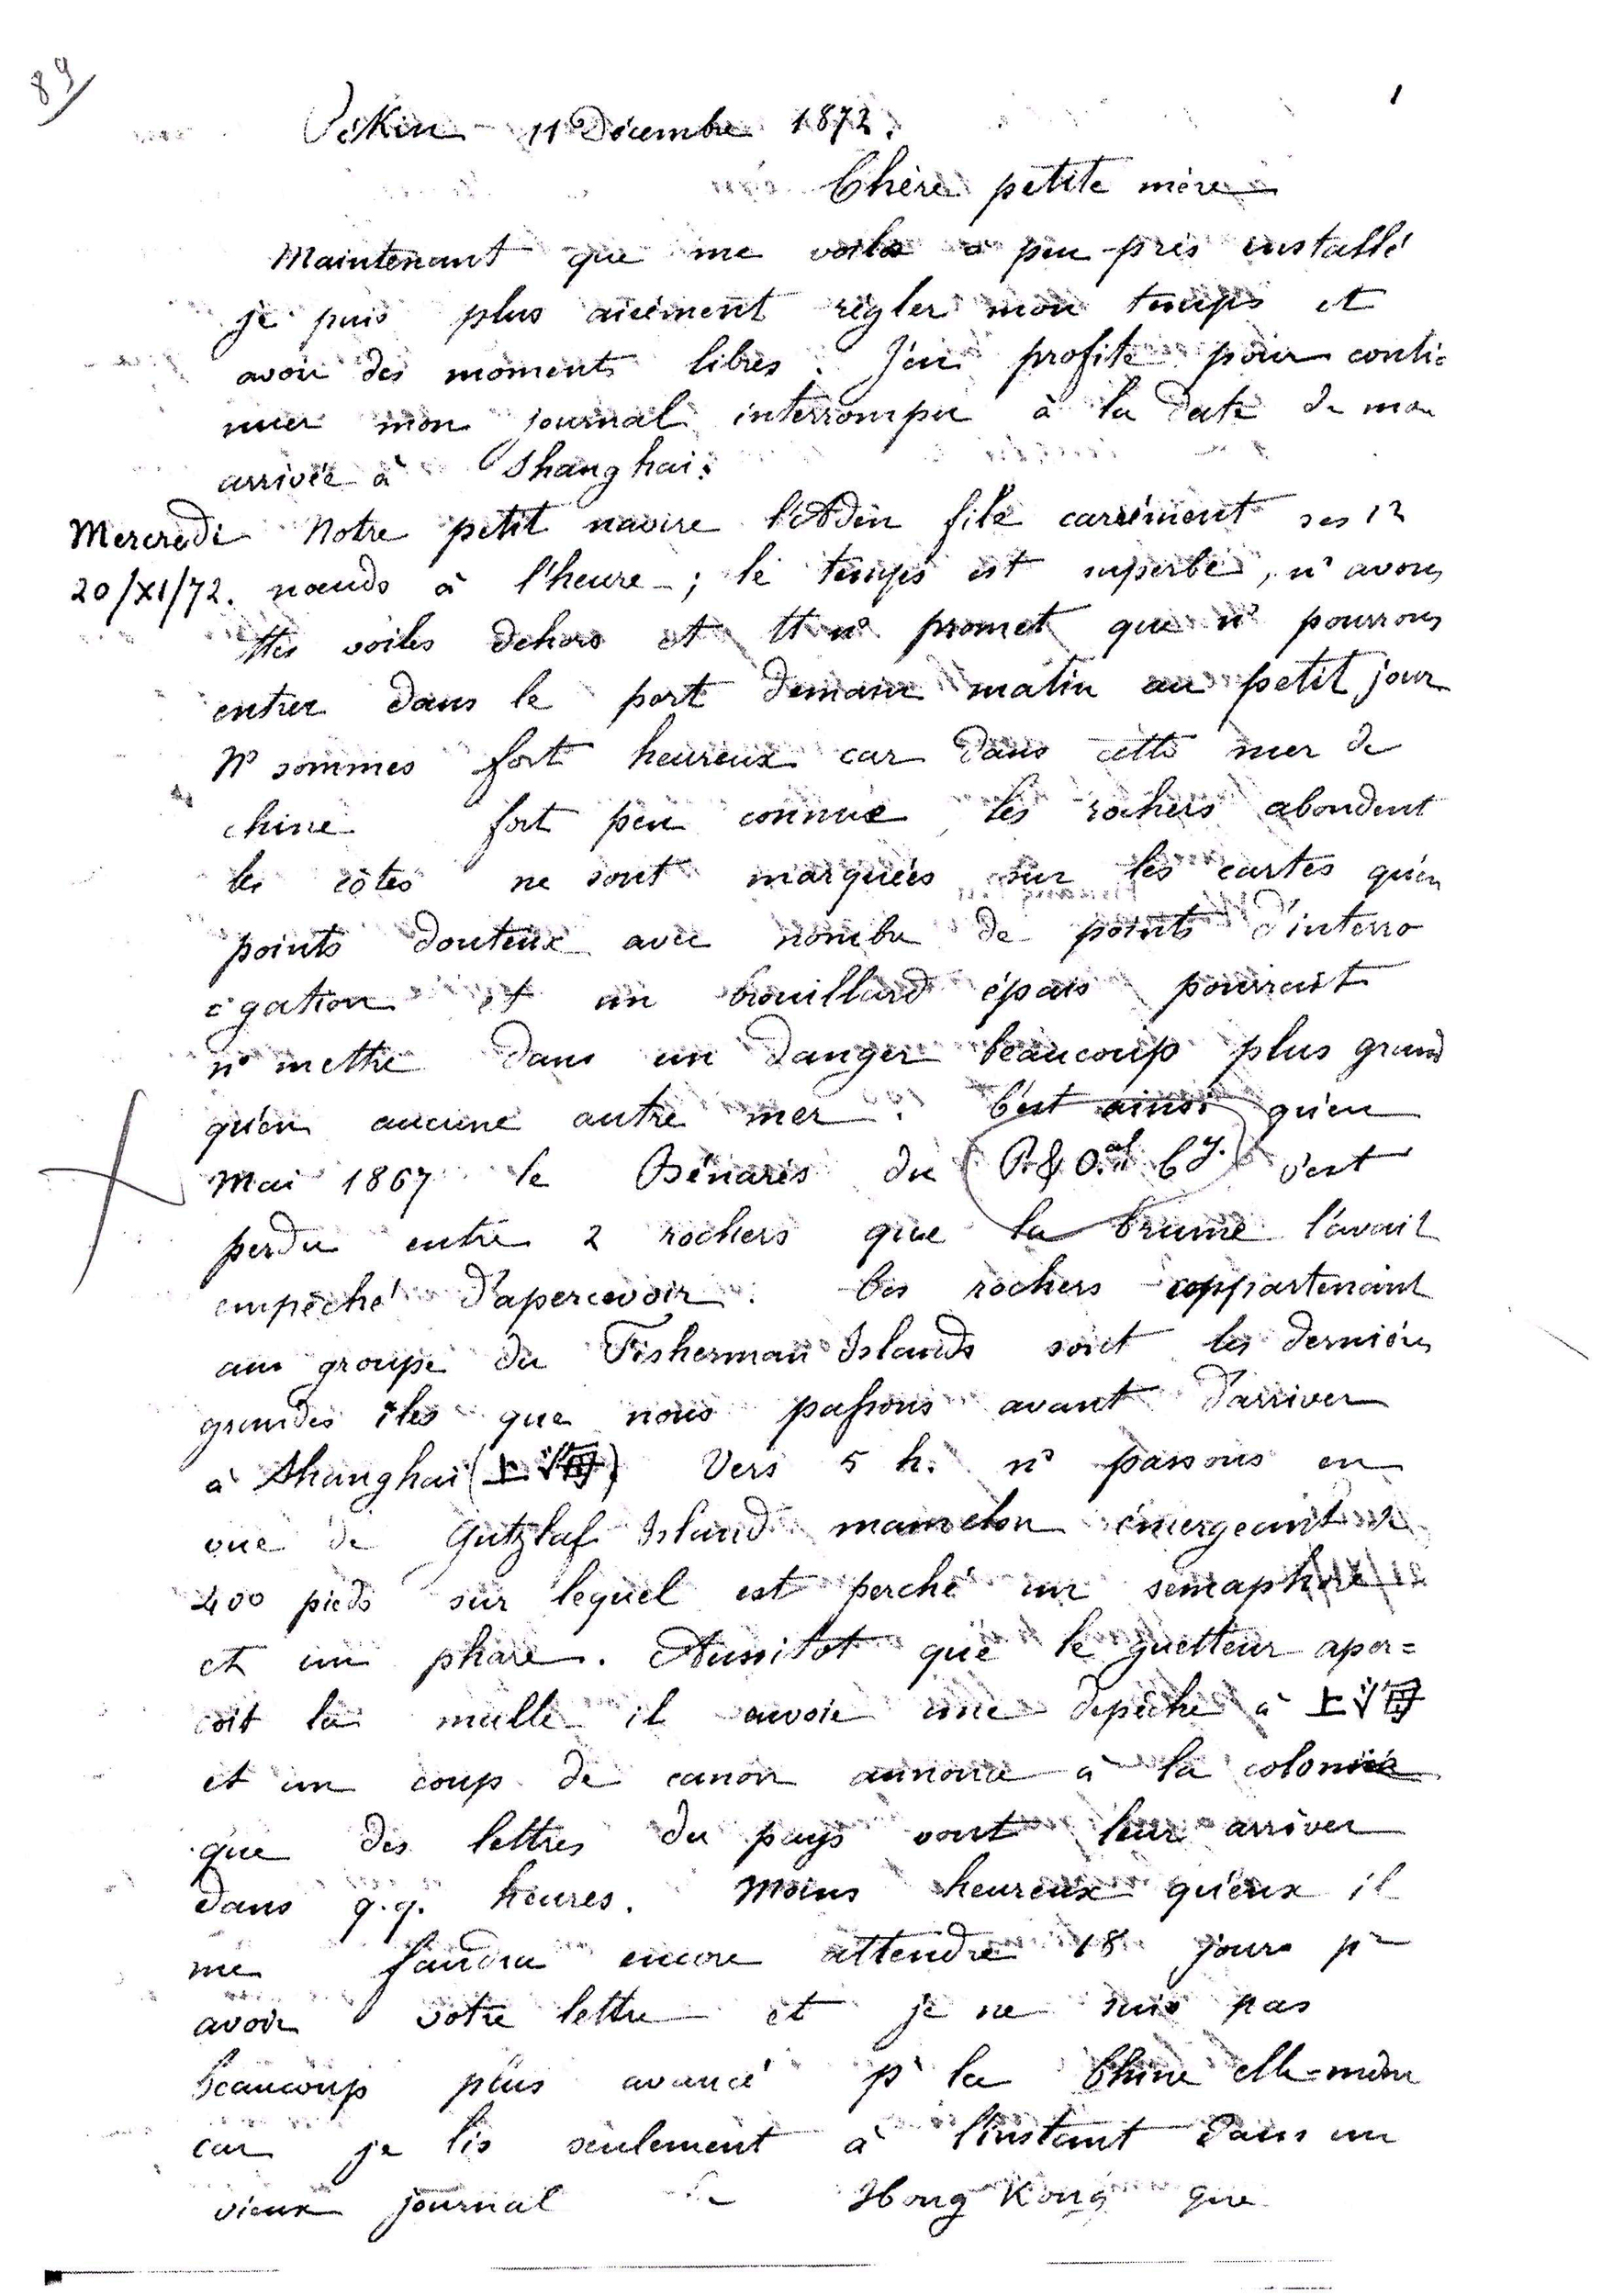 89
1
Pékin 11 Décembre 1872.
Chère petite mère
Maintenant que me voilà à peu près installé
je puis plus aisément régler mon temps et
avoir des moments libres. J'en profite pour conti=
nuer mon journal interrompu à la date de mon
arrivée à Shanghai.
Mercredi Notre petit navire l'Aden file carrément ses 12
20/XI/72. nœuds à l'heure ; le temps est superbe, ns avons
ttes voiles dehors et tt ns promet que ns pourrons
entrer dans le port demain matin au petit jour
Ns sommes fort heureux car dans cette mer de
chine fort peu connue les rochers abondent
les côtes ne sont marquées sur les cartes qu'en
points douteux avec nombre de points d'interro
=gation et un brouillard épais pourrait
ns mettre dans un danger beaucoup plus grand
qu'en aucune autre mer. C'est ainsi qu'en
Mai 1867 le Bénarès du (P. & O.al Cy.) s'est
perdu entre 2 rochers que la brume l'avait
empêché d'apercevoir. Ces rochers appartenant
au groupe du Fisherman Islands sont les dernières
grandes îles que nous passons avant d'arriver
à Shanghai (上海) Vers 5 h. ns passons en
vue de Gutzlaf Island mamelon émergeant de
400 pieds sur lequel est perché un sémaphore
et un phare. Aussitot que le guetteur aper=
coit la malle il envoie une dépêche à 上海
et un coup de canon annonce à la colonie
que des lettres du pays vont leur arriver
dans q.q. heures. Moins heureux qu'eux il
me faudra encore attendre 18 jours pr
avoir votre lettre et je ne suis pas
beaucoup plus avancé pr la Chine elle=même
car je lis seulement à l'instant dans un
vieux journal de Hong Kong que